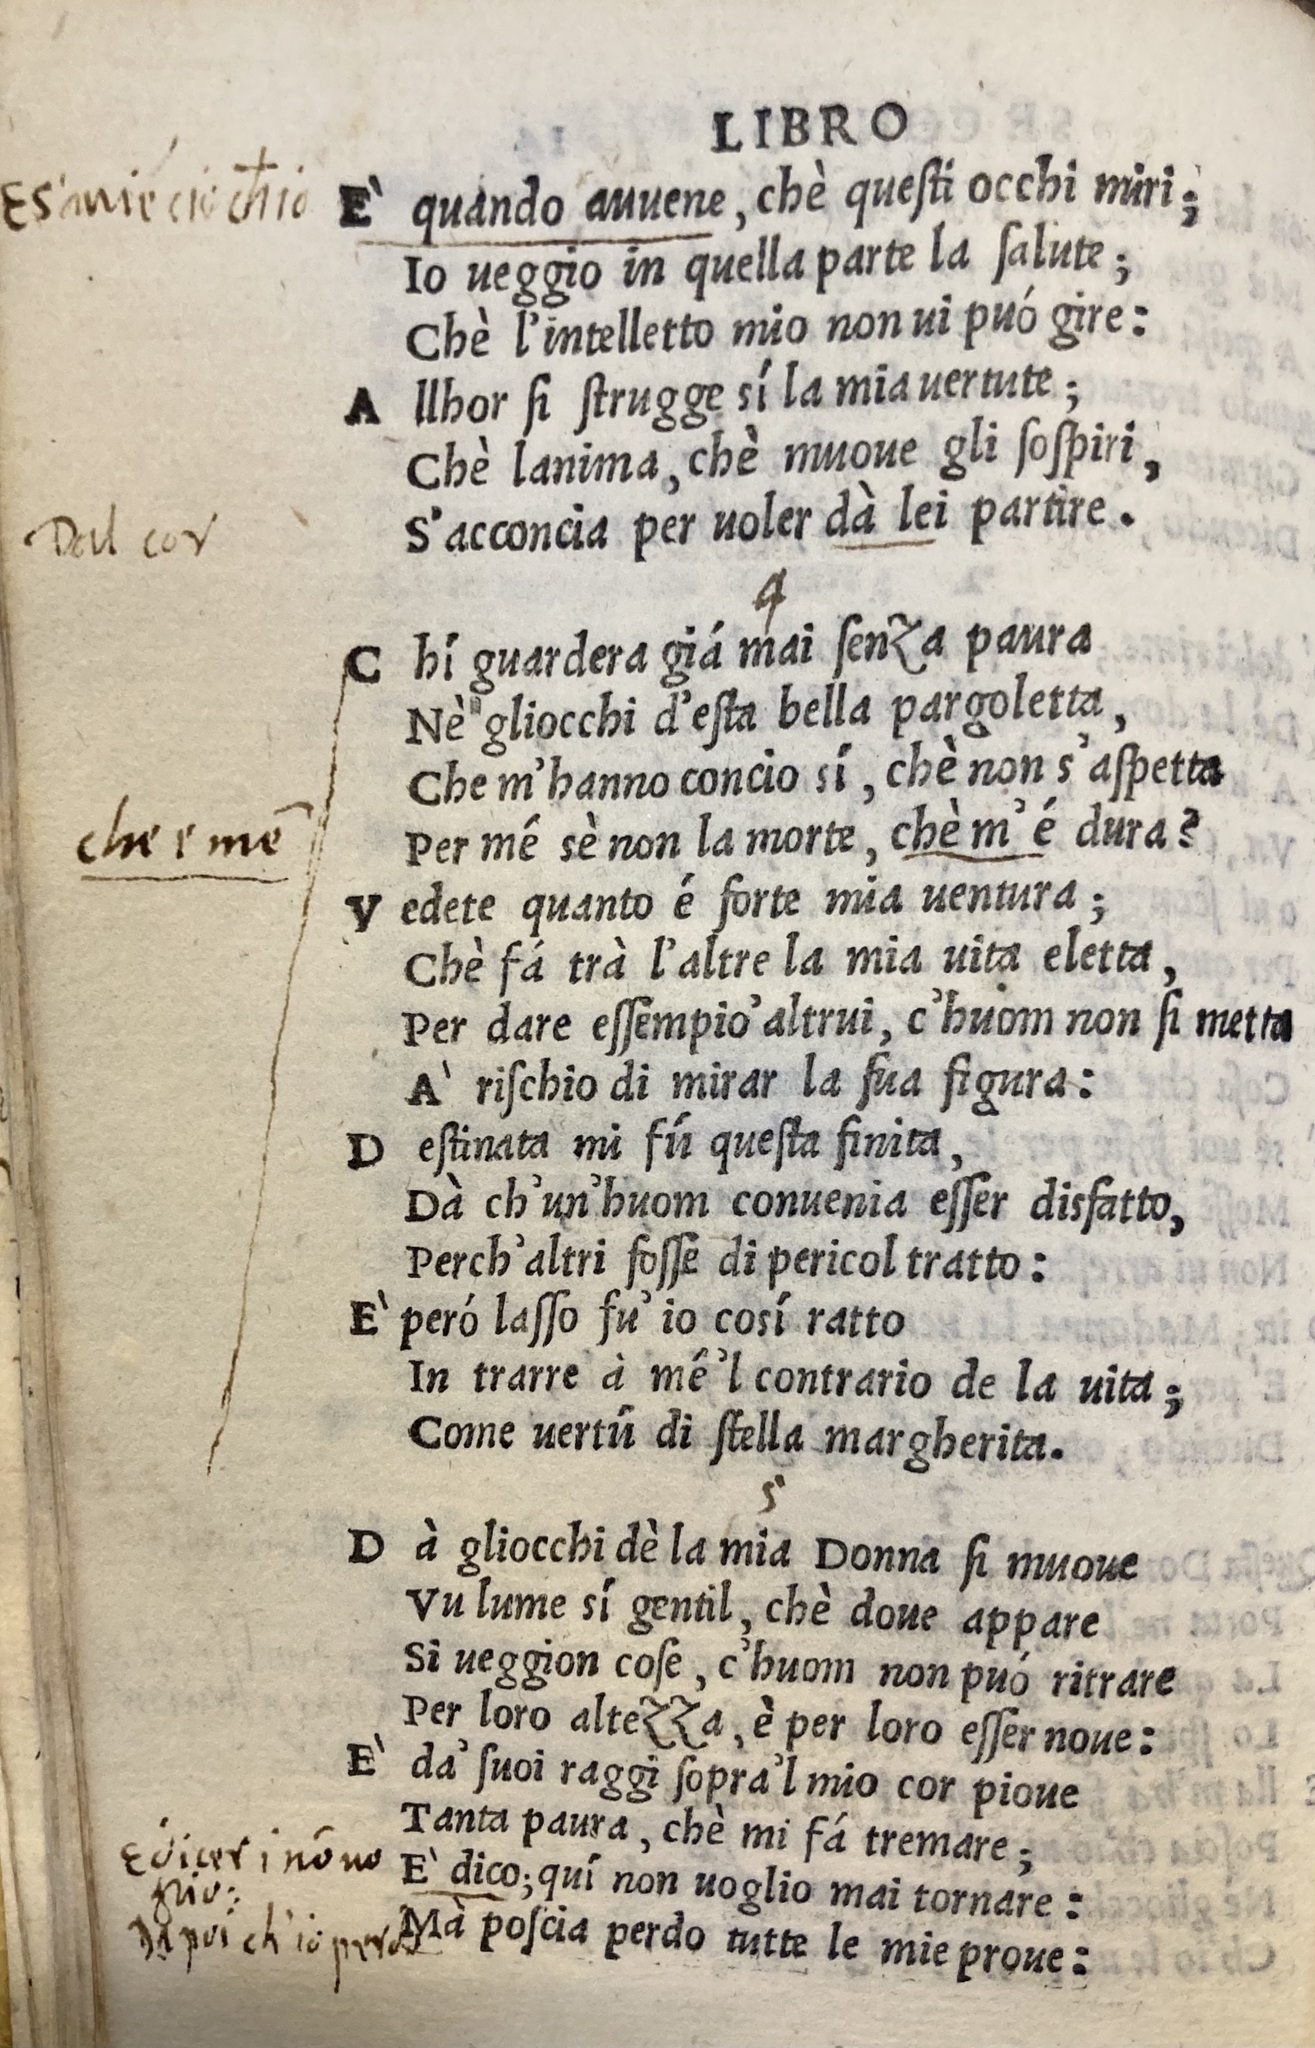 LIBRO
E' quando auuene, chè questi occhi miri;
Io ueggio in quella parte la salute;
Chè l'intelletto mio non ui puó gire:
A llhor si strugge sí la mia uertute;
Chè lanima, chè muoue gli sospiri,
Dal cor
S'acconcia per uoler dà lei partire.
4
C hí guardera giá mai senza paura
Nè gliocchi d'esta bella pargoletta,
Che m'hanno concio sí, chè non s'aspetta
che e me
Per mé sè non la morte, chè m'é dura?
V edete quanto é forte mia uentura;
Chè fá trà l'altre la mia uita eletta,
Per dare essempio'altrui, c'huom non si metta
A' rischio di mirar la sua figura:
D estinata mi fú questa finita,
Dà ch'un'huom conuenia esser disfatto,
Perch'altri fosse di pericol tratto:
E' peró lasso fu'io cosí ratto
In trarre à mé'l contrario de la uita;
Come uertú di stella margherita.
5
D à gliocchi dè la mia Donna si muoue
Vu lume sí gentil, chè doue appare
Si ueggion cose, c'huom non puó ritrare
Per loro altezza, è per loro esser noue:
E' da' suoi raggi sopra'l mio cor pioue
Tanta paura, chè mi fá tremare;
E' dico; quí non uoglio mai tornare:
Mà poscia perdo tutte le mie proue: